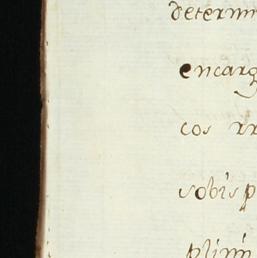 determi
encarg
cos rr
sobisp
plim